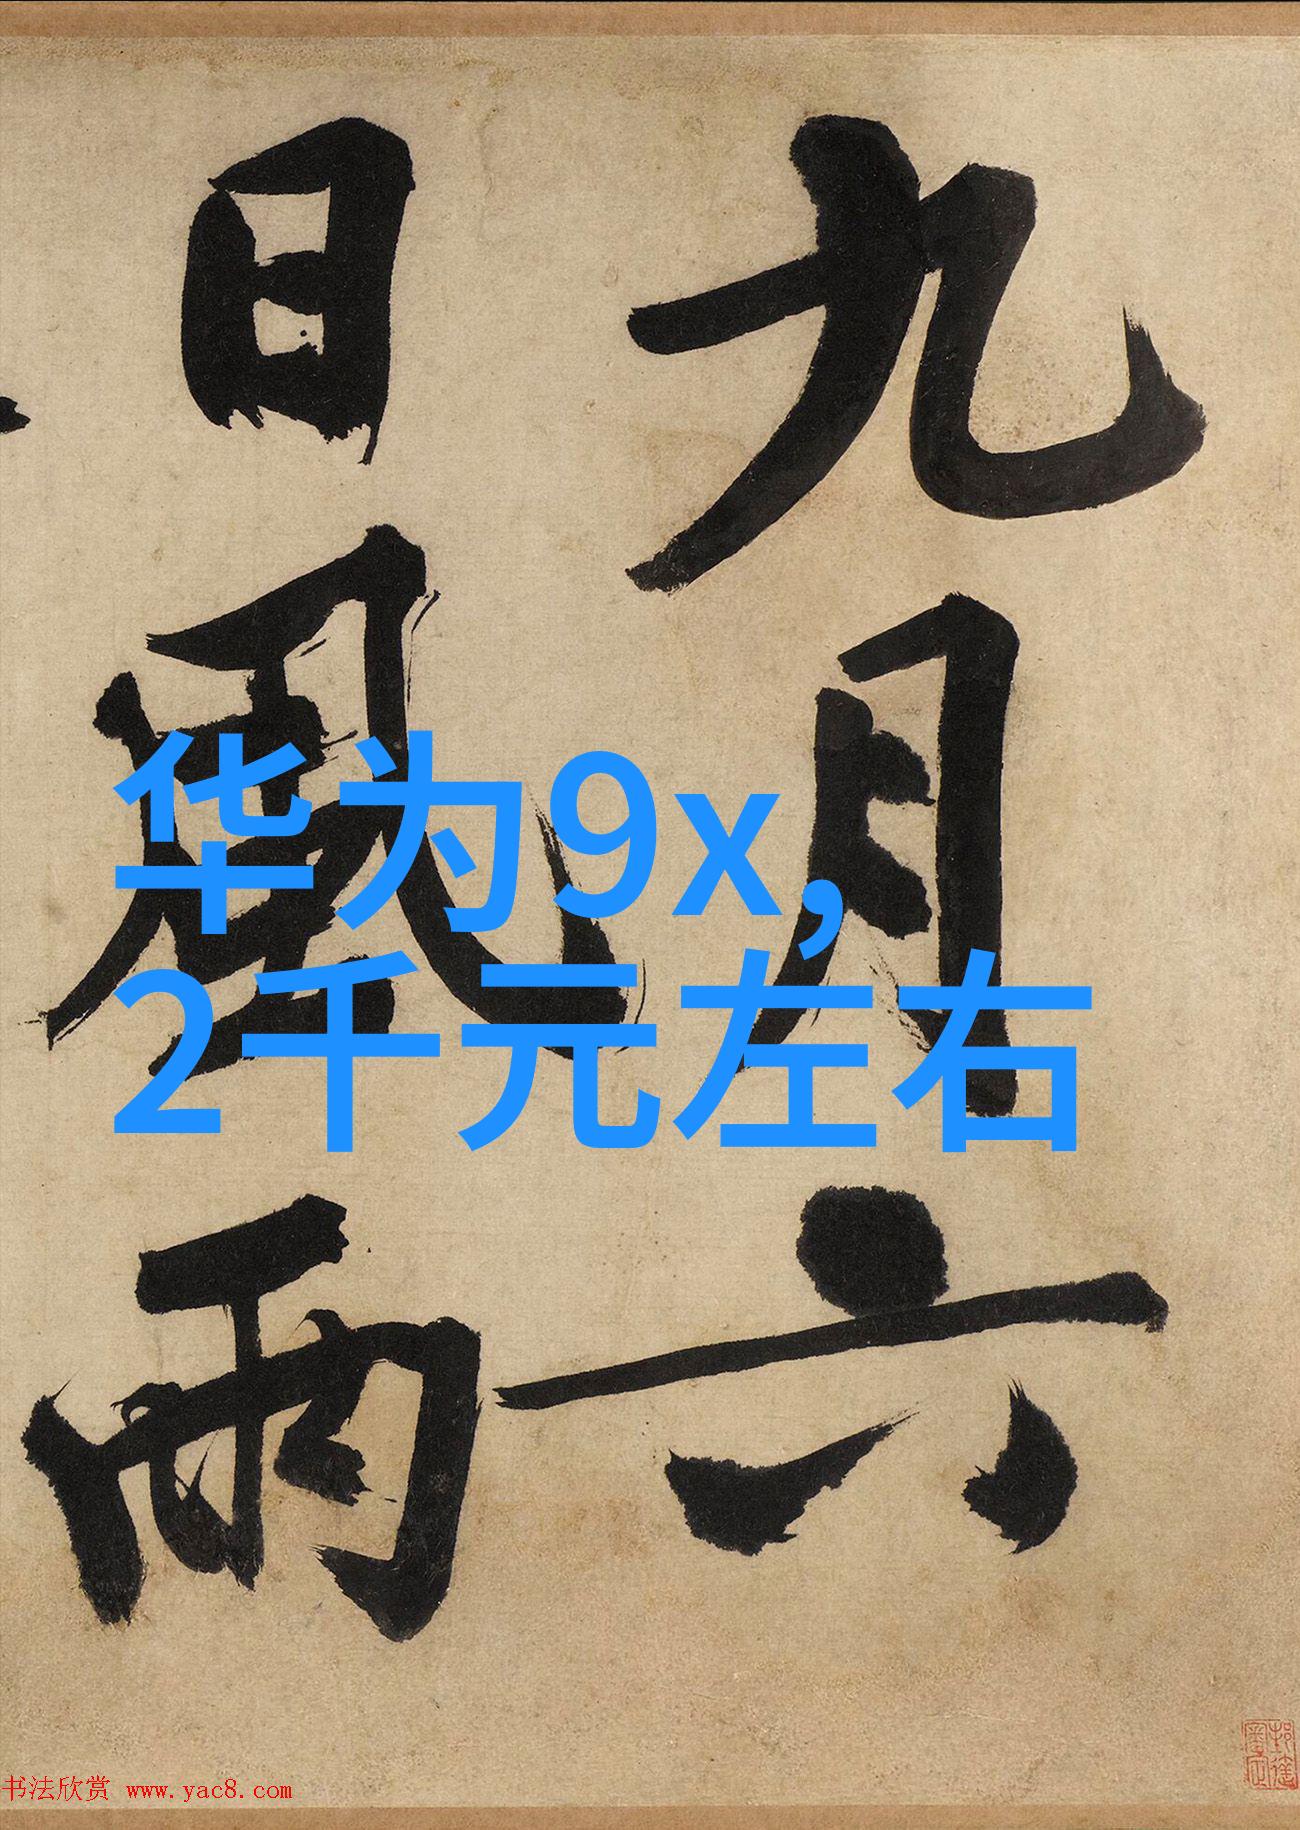 九月六
日風雨
华为9x,
2千元左右
书法欣赏 www.yac8.com